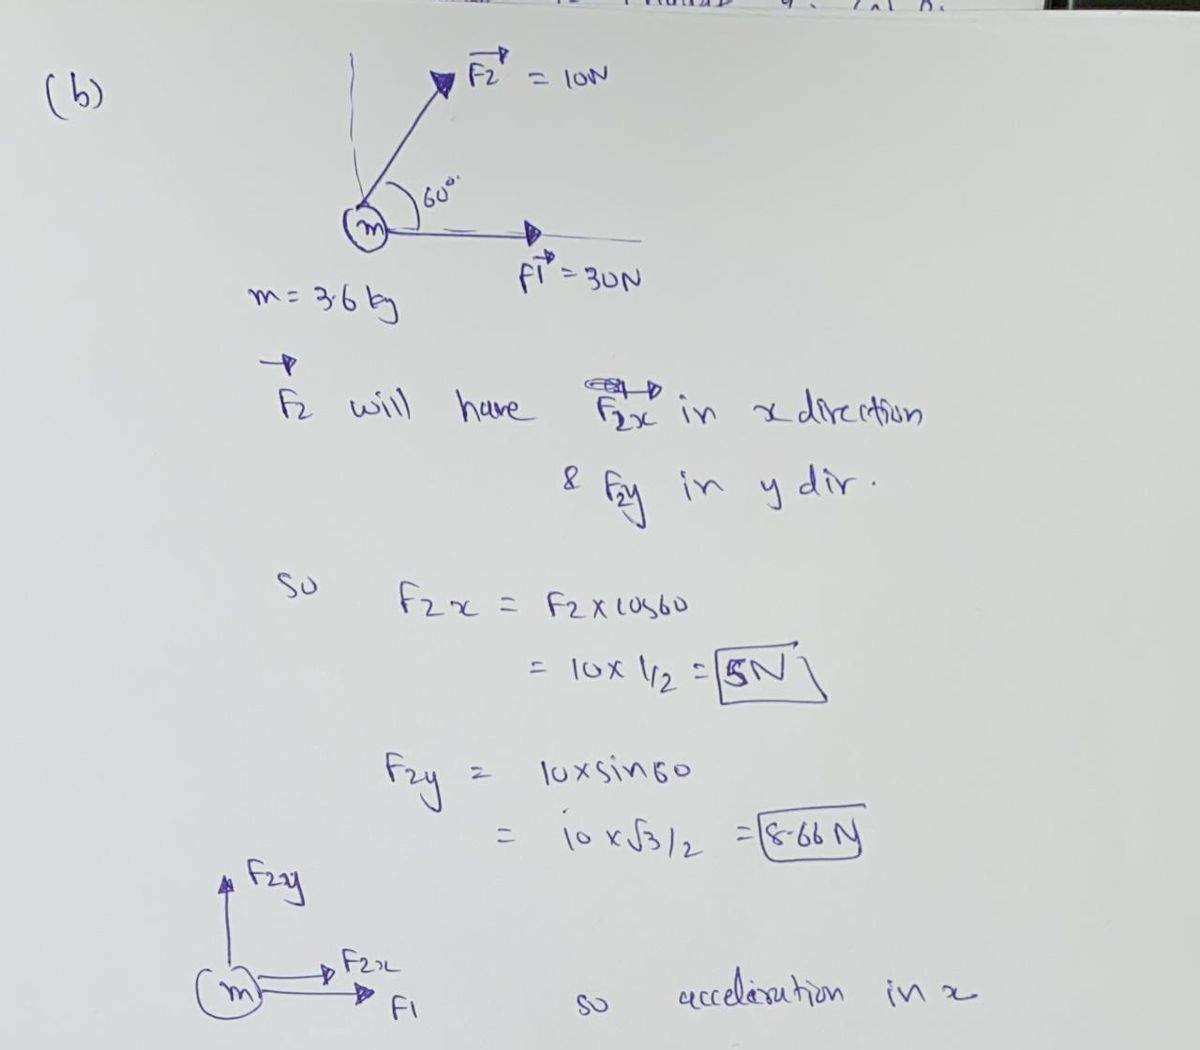 (b)
F2 = 10N
60°
m
F1 = 30N
m = 3.6 kg
F2 will have F2x in x direction
& F2y in y dir.
so F2x = F2 x cos60
= 10 x 1/2 = 5N
F2y = 10 x sin60
= 10 x √3/2 = 8.66 N
F2y
F2x
m
F1
so acceleration in x